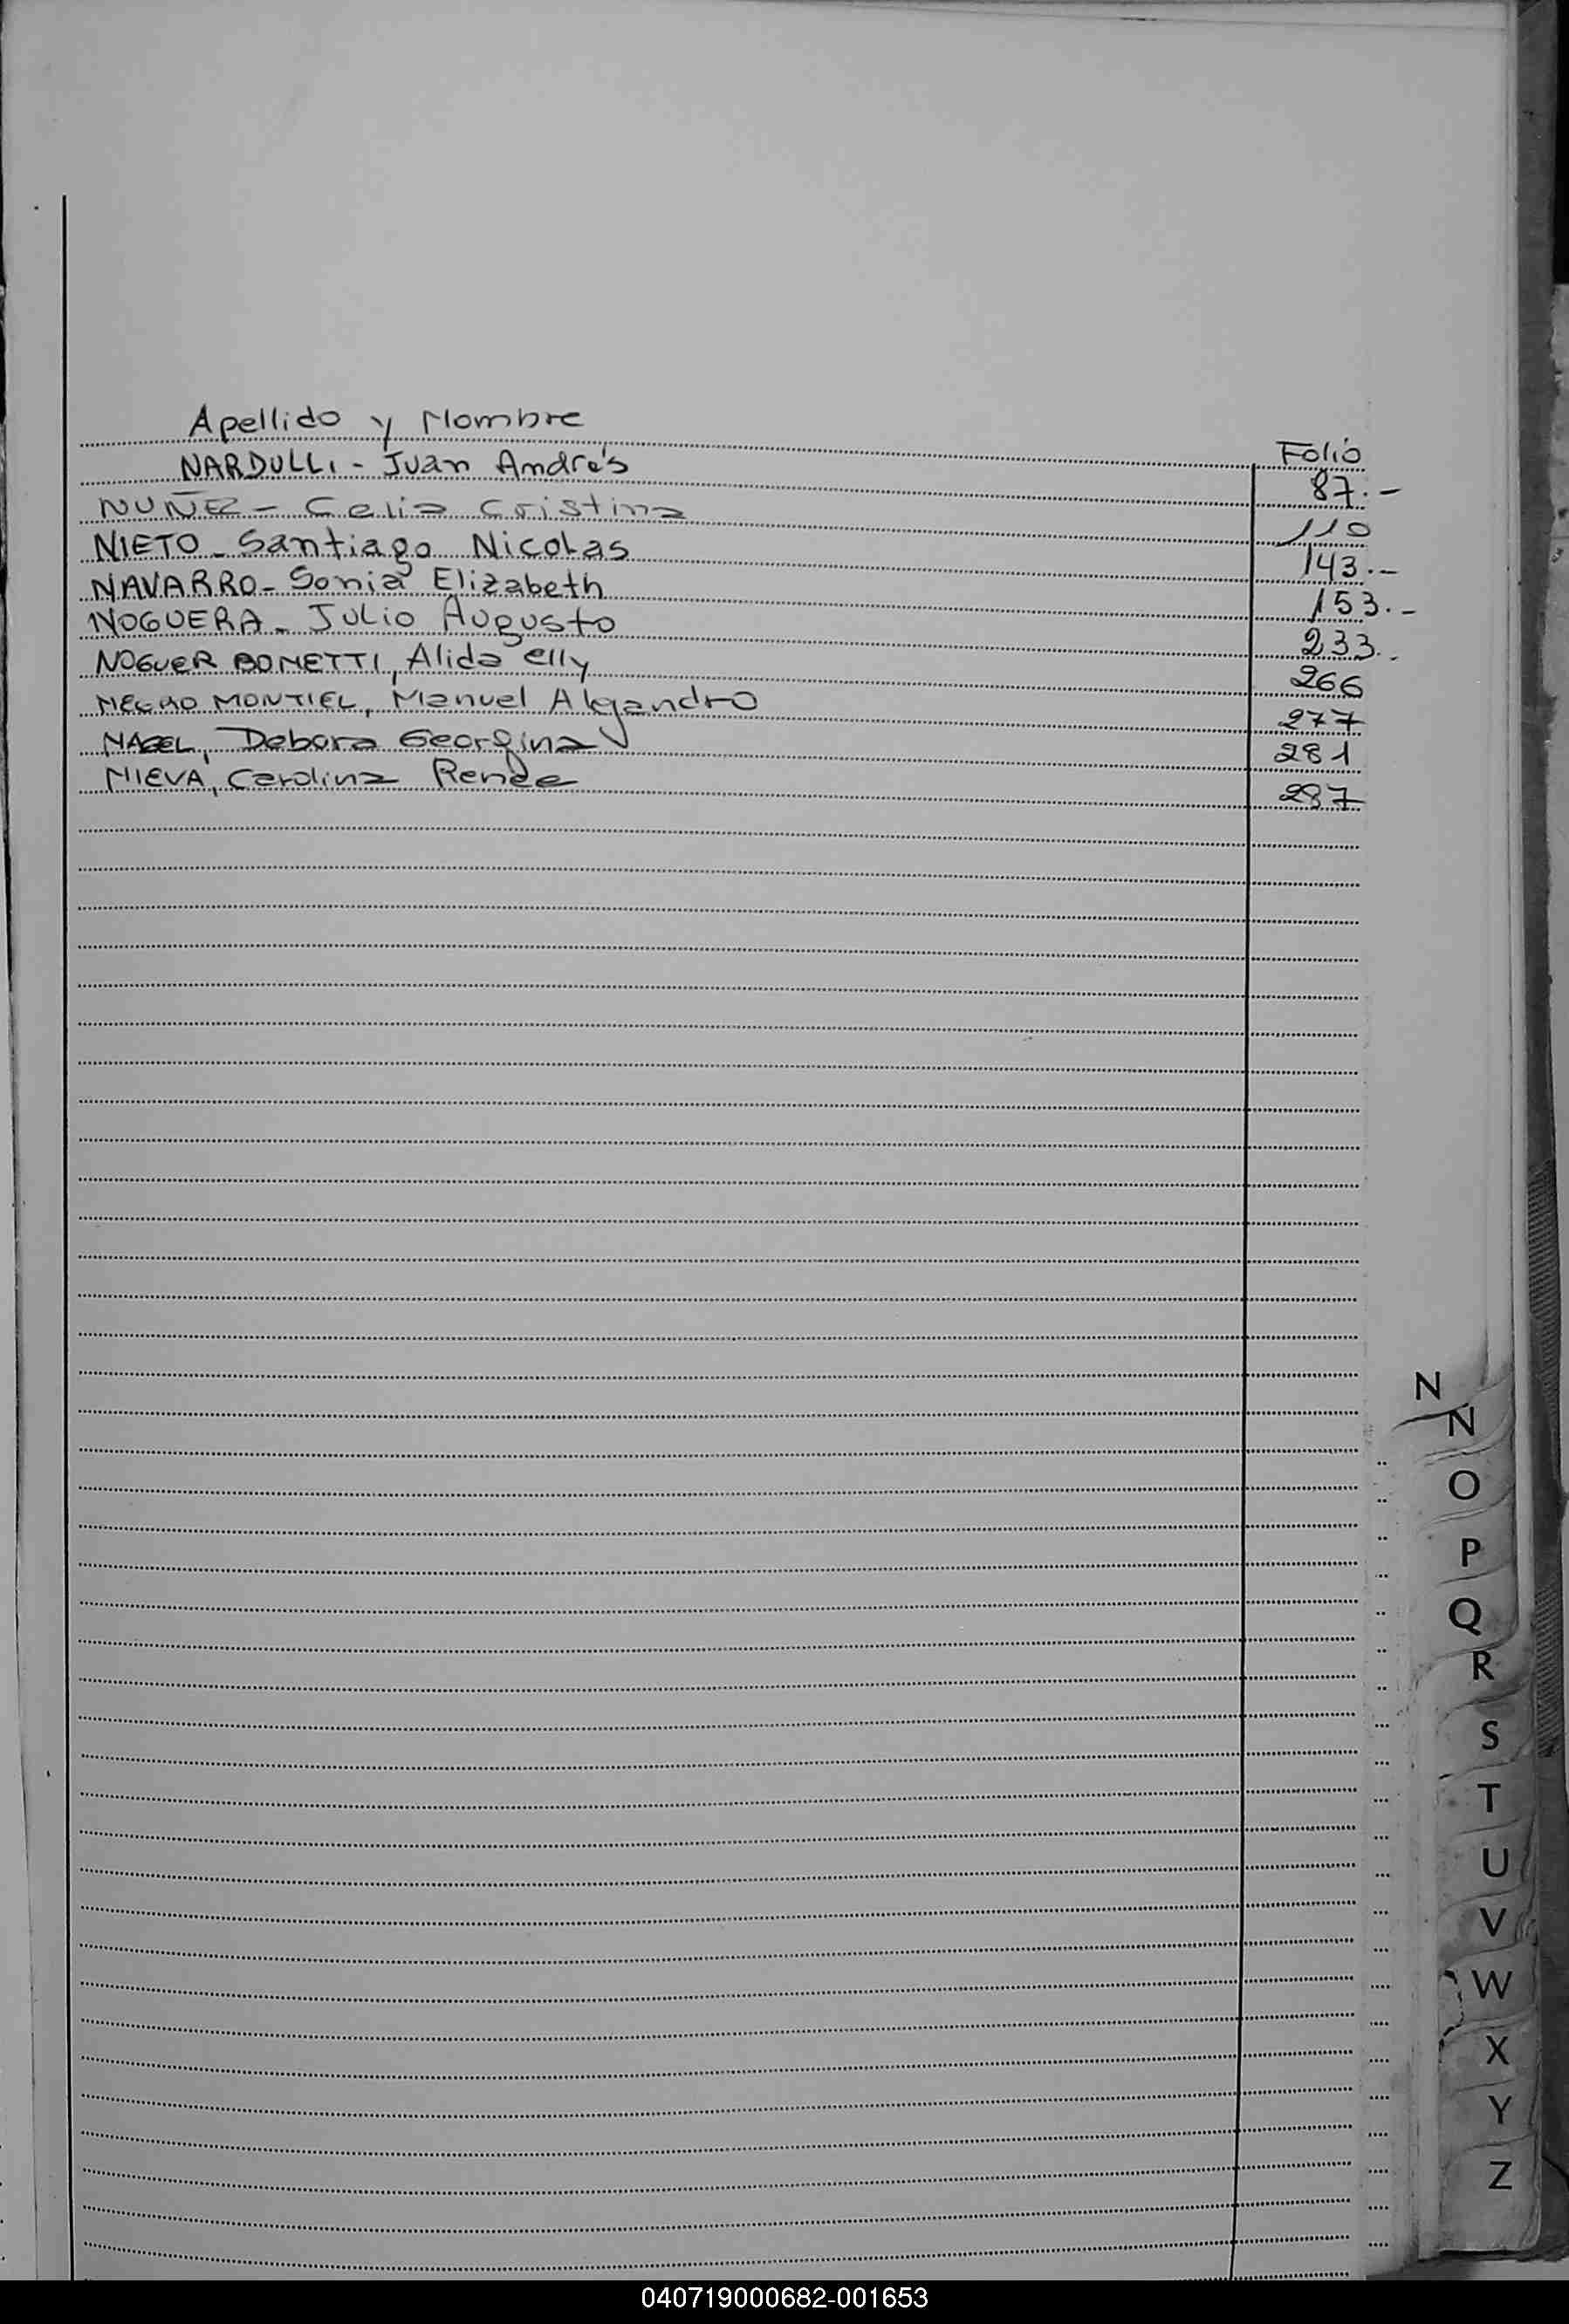 Apellido y Nombre
Folio
NARDULLI - Juan Andrés 87.-
NUÑEZ - Celia Cristina 110
NIETO - Santiago Nicolas 143.-
NAVARRO - Sonia Elizabeth 153.-
NOGUERA - Julio Augusto 233.-
NOGUER BONETTI, Alida elly 266
NEGRO MONTIEL, Manuel Alejandro 277
NAGEL, Debora Georgina 281
NIEVA, Carolina Renée 287
N
N
O
P
Q
R
S
T
U
V
W
X
Y
Z
040719000682-001653